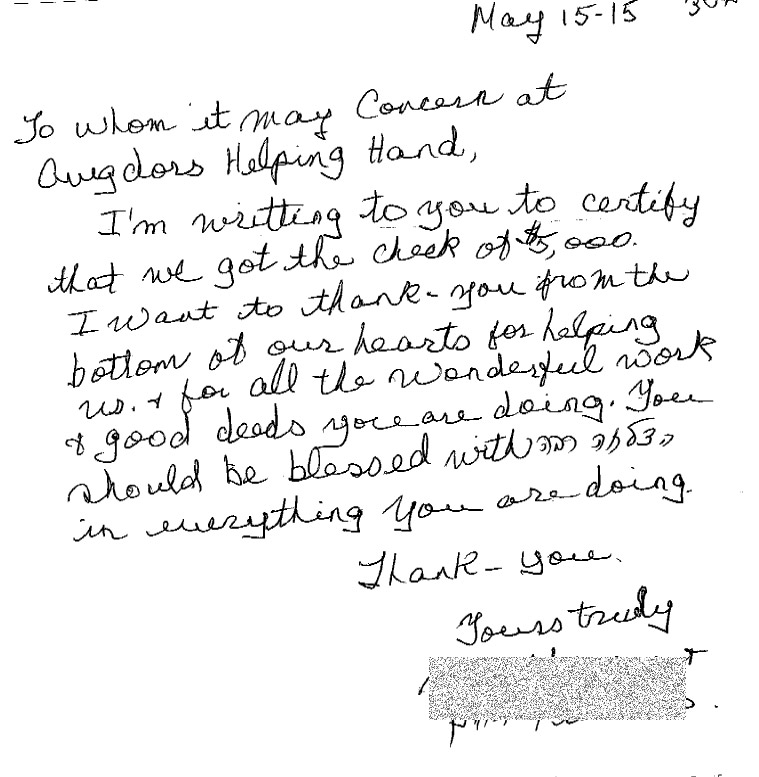 May 15-15
To whom it may Concern at
Avigdors Helping Hand,
I'm writting to you to certify
that we got the check of $5,000.
I want to thank-you from the
bottom of our hearts for helping
us. & for all the wonderful work
& good deeds you are doing. You
should be blessed with ברכה והצלחה
in everything you are doing.
Thank-you.
Yours truly